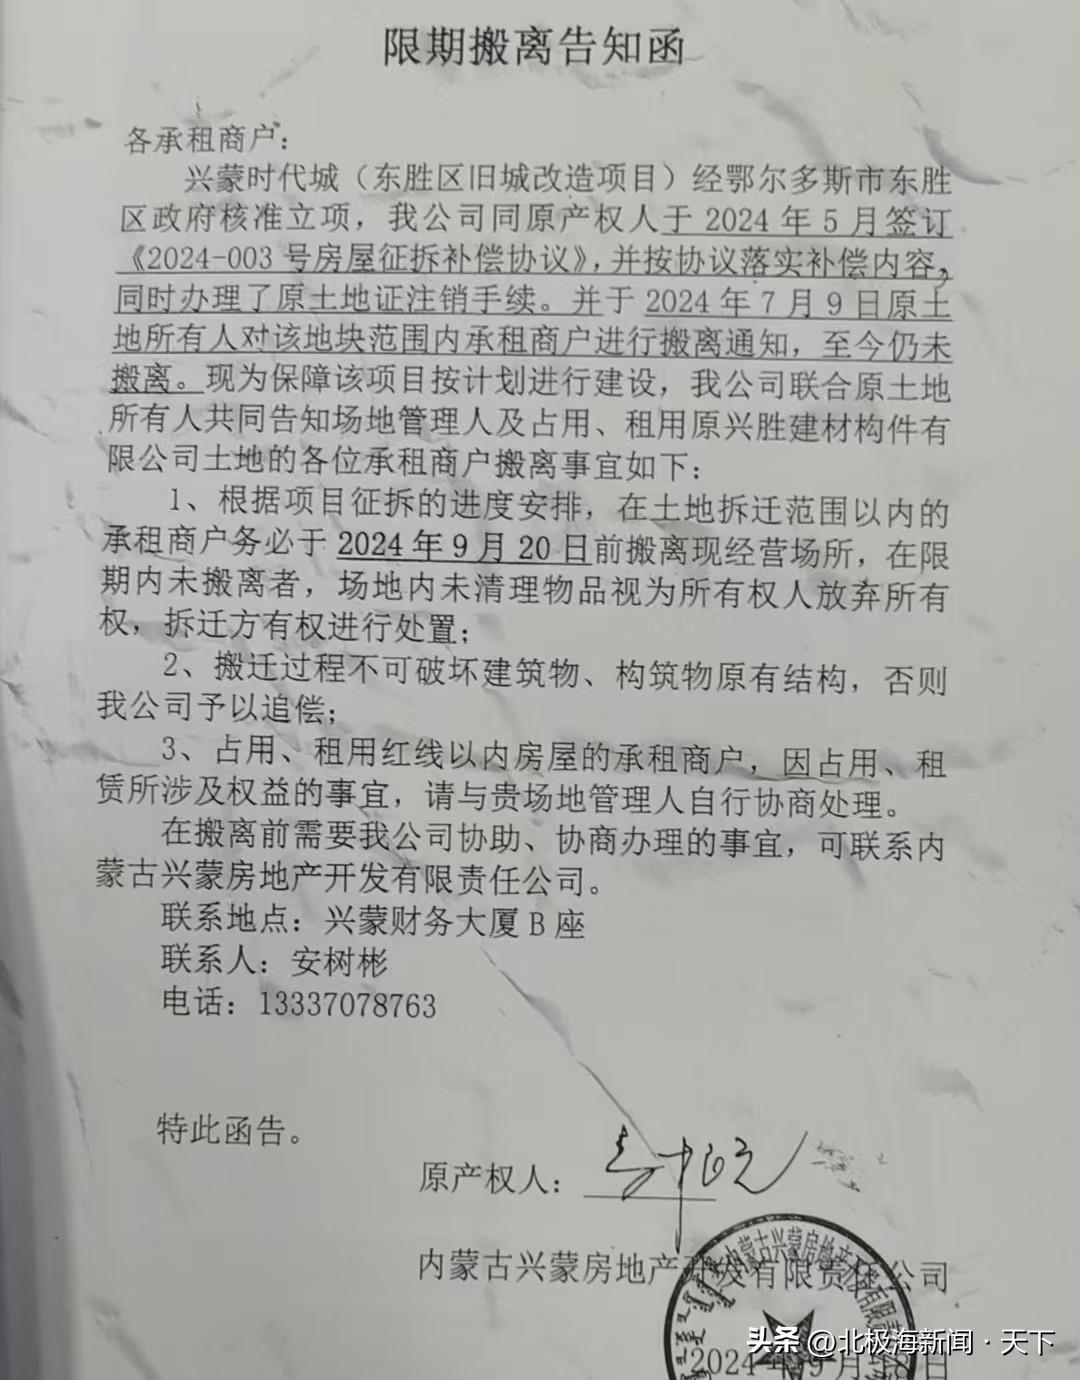 限期搬离告知函
各承租商户：
兴蒙时代城（东胜区旧城改造项目）经鄂尔多斯市东胜
区政府核准立项，我公司同原产权人于 2024 年 5 月签订
《2024-003 号房屋征拆补偿协议》，并按协议落实补偿内容，
同时办理了原土地证注销手续。并于 2024 年 7 月 9 日原土
地所有人对该地块范围内承租商户进行搬离通知，至今仍未
搬离。现为保障该项目按计划进行建设，我公司联合原土地
所有人共同告知场地管理人及占用、租用原兴胜建材构件有
限公司土地的各位承租商户搬离事宜如下：
1、根据项目征拆的进度安排，在土地拆迁范围以内的
承租商户务必于 2024 年 9 月 20 日前搬离现经营场所，在限
期内未搬离者，场地内未清理物品视为所有权人放弃所有
权，拆迁方有权进行处置；
2、搬迁过程不可破坏建筑物、构筑物原有结构，否则
我公司予以追偿；
3、占用、租用红线以内房屋的承租商户，因占用、租
赁所涉及权益的事宜，请与贵场地管理人自行协商处理。
在搬离前需要我公司协助、协商办理的事宜，可联系内
蒙古兴蒙房地产开发有限责任公司。
联系地点：兴蒙财务大厦 B 座
联系人：安树彬
电话：13337078763
特此函告。
原产权人：
内蒙古兴蒙房地产开发有限责任公司
内蒙古兴蒙房地产开发有限责
2024 年 9 月 日
头条 @北极海新闻·天下